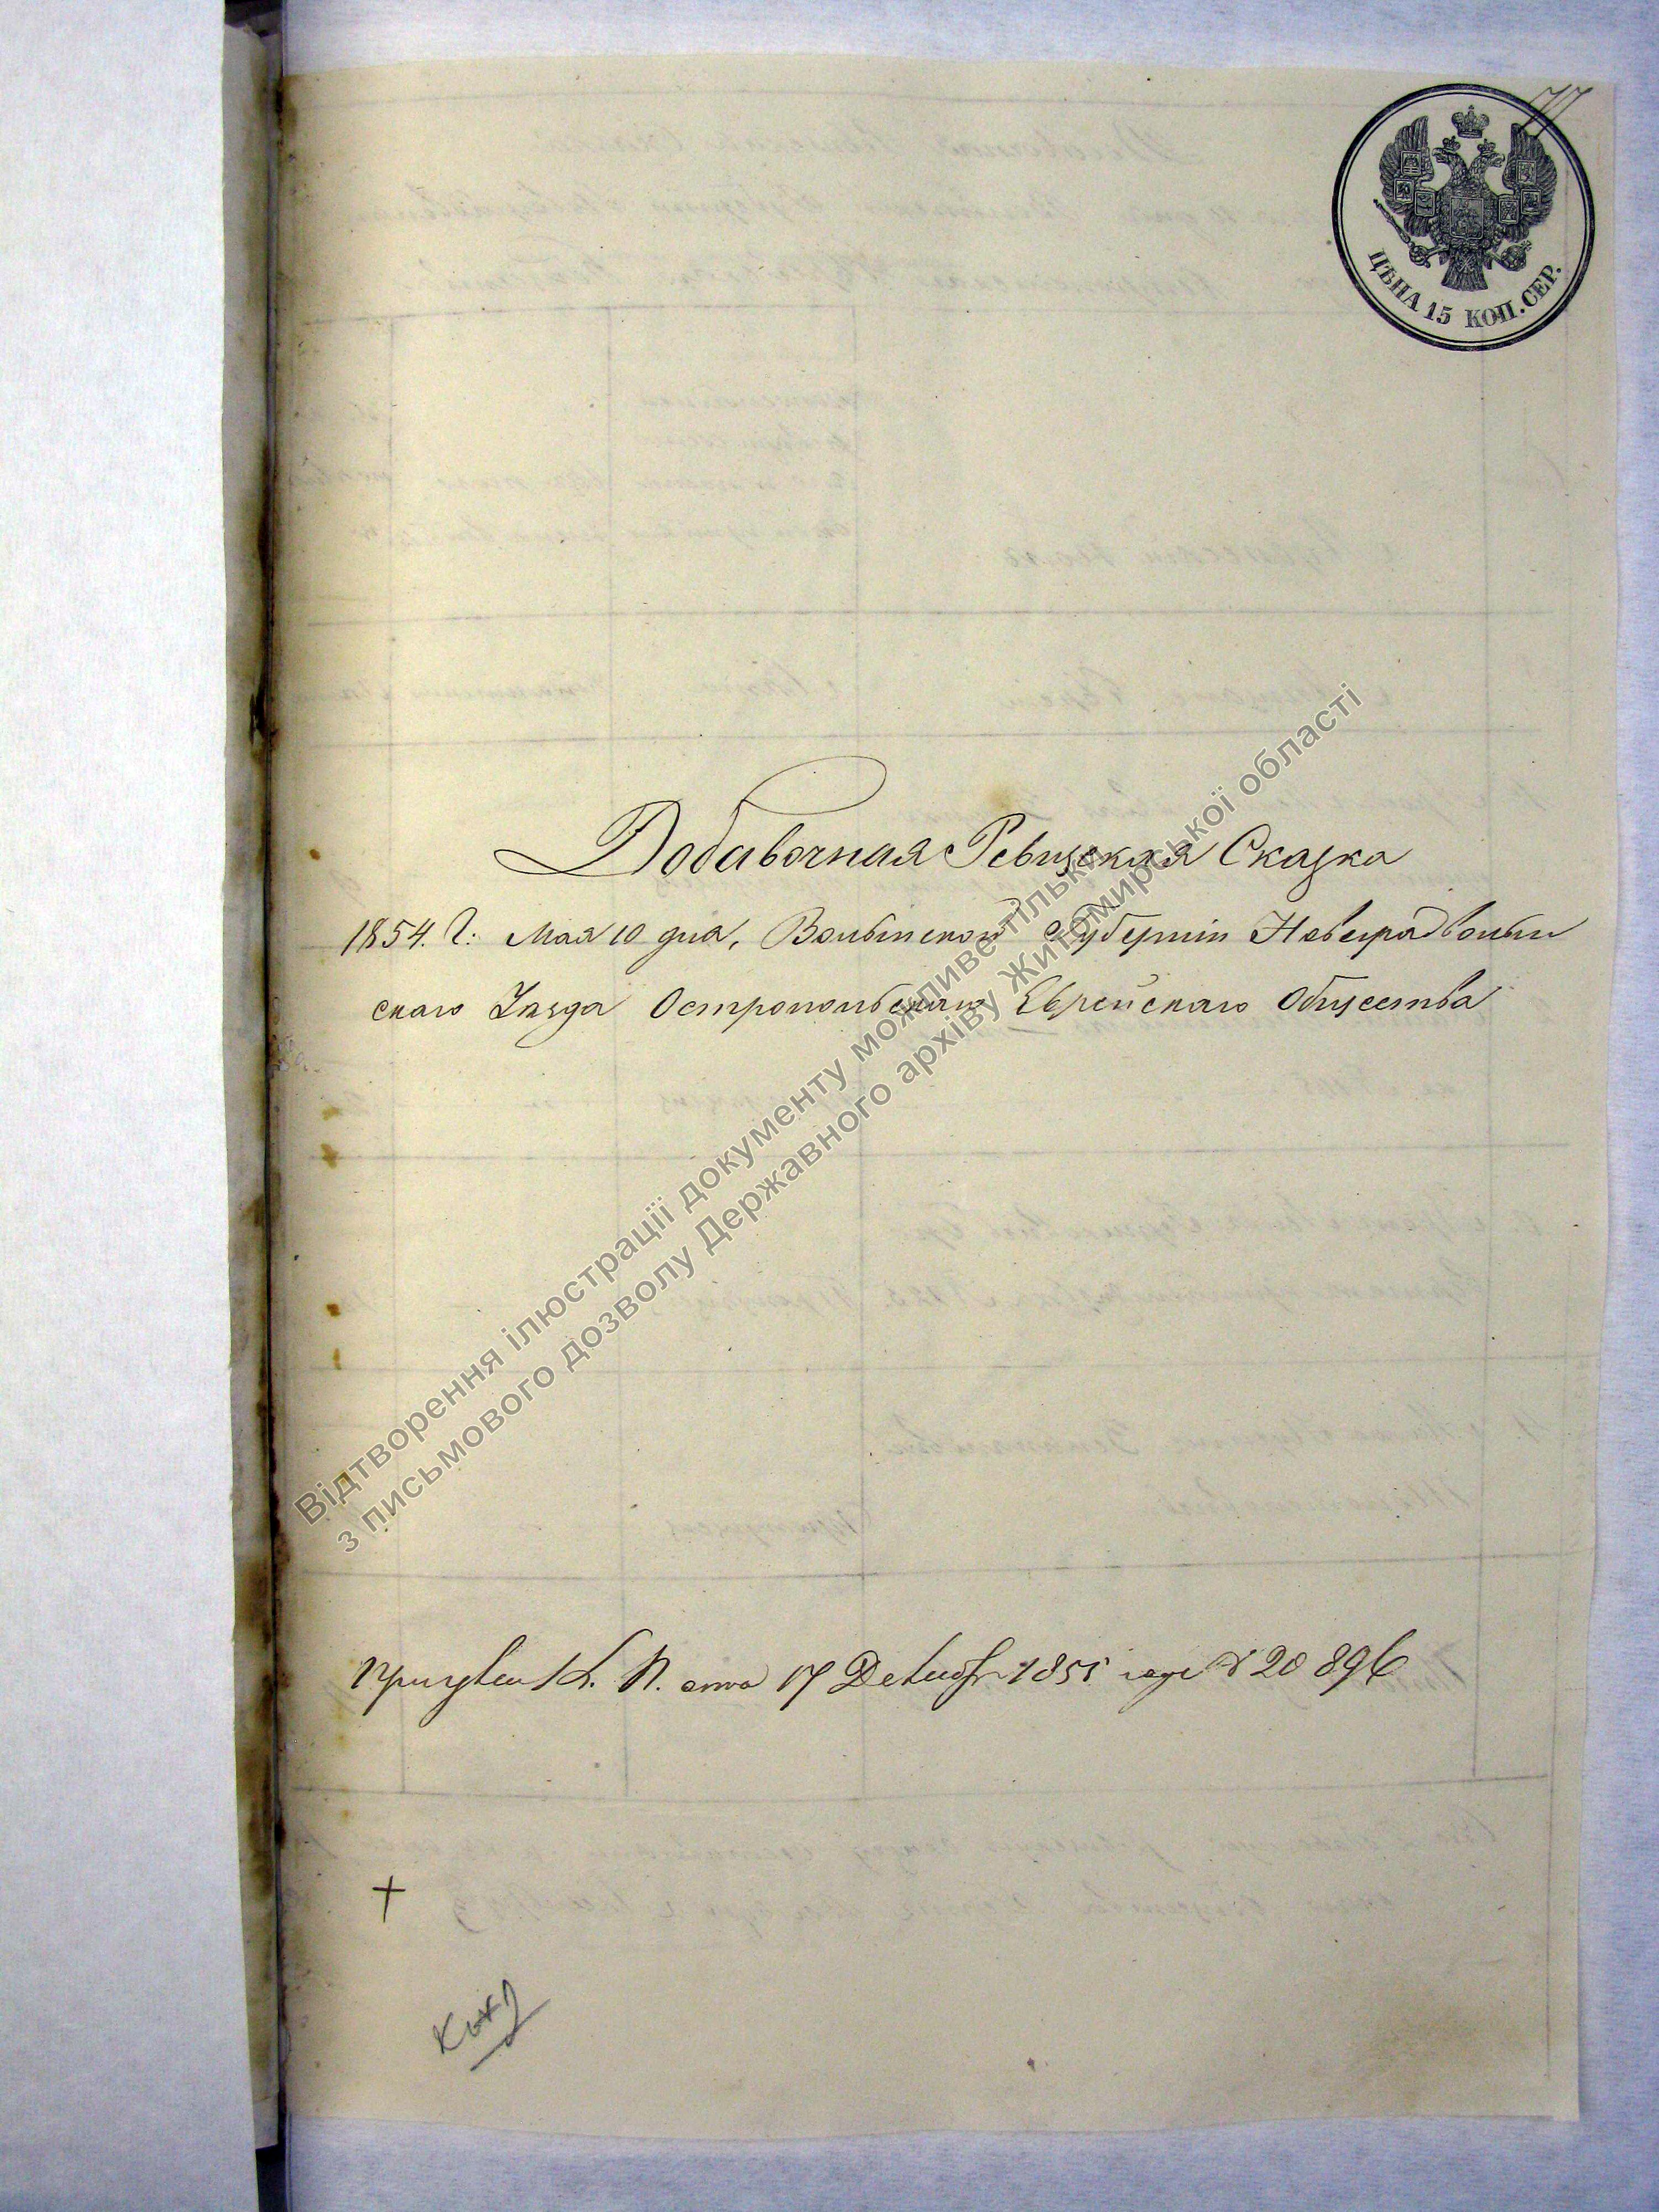 77
ЦѢНА 15 КОП. СЕР.
Добавочная Ревизская Сказка
1854. Г: Мая 10 дня, Волынской Губерніи Новградволын
скаго Уѣзда Остропольскаго Еврейскаго Общества
К. П. отъ 17 Декабр 1855 года № 20896
Відтворення ілюстрації документу можливе тільки
з письмового дозволу Державного архіву Житомирської області